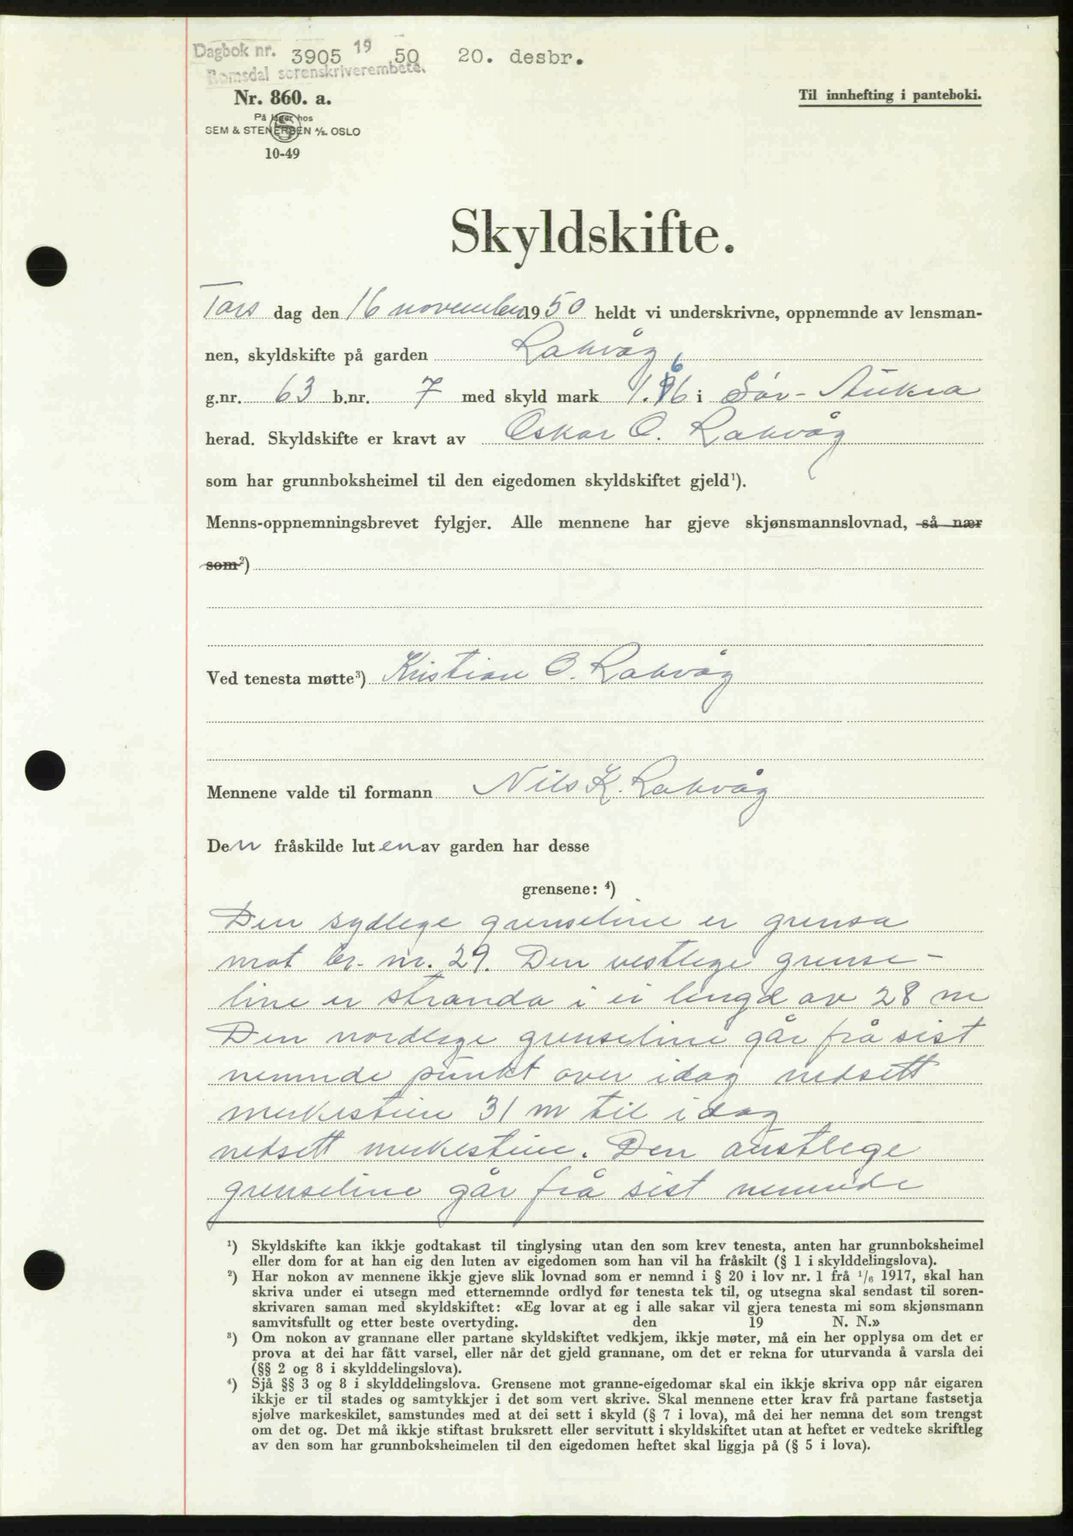 Dagbok nr. 3905 19 50 20. desbr.
Romsdal sorenskriverembete.
Nr. 860. a.
Til innhefting i panteboki.
På lager hos
SEM & STENERSEN A/S. OSLO
10-49
Skyldskifte.
Tors dag den 16 november 1950 heldt vi underskrivne, oppnemnde av lensman-
nen, skyldskifte på garden Rakvåg
g.nr. 63 b.nr. 7 med skyld mark 1.66 i Sør-Aukra
herad. Skyldskifte er kravt av Oskar O. Rakvåg
som har grunnboksheimel til den eigedomen skyldskiftet gjeld¹).
Menns-oppnemningsbrevet fylgjer. Alle mennene har gjeve skjønsmannslovnad, så nær
som²)
Ved tenesta møtte³) Kristian O. Rakvåg
Mennene valde til formann Nils K. Rakvåg
Den fråskilde luten av garden har desse
grensene: ⁴)
Den sydlege grenseline er grensa
mot br. nr. 29. Den vestlege grense-
line er stranda i ei lengd av 28 m
Den nordlege grenseline går frå sist
nemnde punkt over idag nedsett
merkestein 31 m til idag
nedsett merkestein. Den austlege
grenseline går frå sist nemnde
¹) Skyldskifte kan ikkje godtakast til tinglysing utan den som krev tenesta, anten har grunnboksheimel
eller dom for at han eig den luten av eigedomen som han vil ha fråskilt (§ 1 i skylddelingslova).
²) Har nokon av mennene ikkje gjeve slik lovnad som er nemnd i § 20 i lov nr. 1 frå ¹/₆ 1917, skal han
skriva under ei utsegn med etternemnde ordlyd før tenesta tek til, og utsegna skal sendast til soren-
skrivaren saman med skyldskiftet: «Eg lovar at eg i alle sakar vil gjera tenesta mi som skjønsmann
samvitsfullt og etter beste overtyding. den 19 N. N.»
³) Om nokon av grannane eller partane skyldskiftet vedkjem, ikkje møter, må ein her opplysa om det er
prova at dei har fått varsel, eller når det gjeld grannane, om det er rekna for uturvanda å varsla dei
(§§ 2 og 8 i skylddelingslova).
⁴) Sjå §§ 3 og 8 i skylddelingslova. Grensene mot granne-eigedomar skal ein ikkje skriva opp når eigaren
ikkje er til stades og samtykkjer i det som vert skrive. Skal mennene etter krav frå partane fastsetja
sjølve markeskilet, samstundes med at dei sett i skyld (§ 7 i lova), må dei her nemna det som trengst
om det og. Det må ikkje stiftast bruksrett eller servitutt i skyldskiftet utan at heftet er vedteke skriftleg
av den som har grunnboksheimelen til den eigedomen heftet skal liggja på (§ 5 i lova).